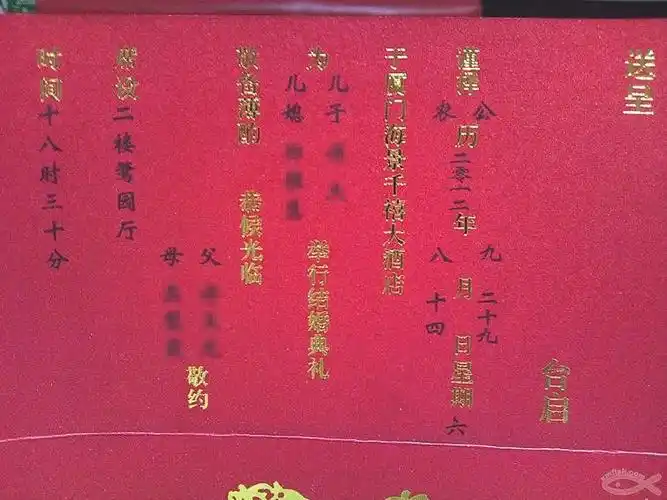 送呈
台启
谨择公历二零一二年九月二十九日星期六
农历八月十四
于厦门海景千禧大酒店
为儿子
儿媳
举行结婚典礼
敬备薄酌 恭候光临
父
母
敬约
席设二楼鹭园厅
时间十八时三十分